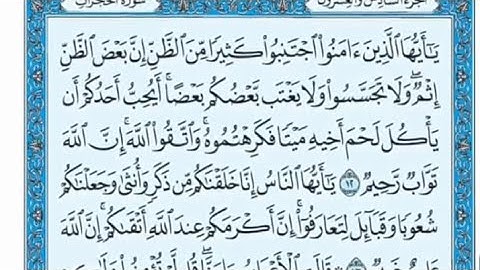 سورة الحجرات الجزء السادس والعشرون
يَٰٓأَيُّهَا ٱلَّذِينَ ءَامَنُوا۟ ٱجْتَنِبُوا۟ كَثِيرًا مِّنَ ٱلظَّنِّ إِنَّ بَعْضَ ٱلظَّنِّ
إِثْمٌ ۖ وَلَا تَجَسَّسُوا۟ وَلَا يَغْتَب بَّعْضُكُم بَعْضًا ۚ أَيُحِبُّ أَحَدُكُمْ أَن
يَأْكُلَ لَحْمَ أَخِيهِ مَيْتًا فَكَرِهْتُمُوهُ ۚ وَٱتَّقُوا۟ ٱللَّهَ ۚ إِنَّ ٱللَّهَ
تَوَّابٌ رَّحِيمٌ ١٢ يَٰٓأَيُّهَا ٱلنَّاسُ إِنَّا خَلَقْنَٰكُم مِّن ذَكَرٍ وَأُنثَىٰ وَجَعَلْنَٰكُمْ
شُعُوبًا وَقَبَآئِلَ لِتَعَارَفُوٓا۟ ۚ إِنَّ أَكْرَمَكُمْ عِندَ ٱللَّهِ أَتْقَىٰكُمْ ۚ إِنَّ ٱللَّهَ